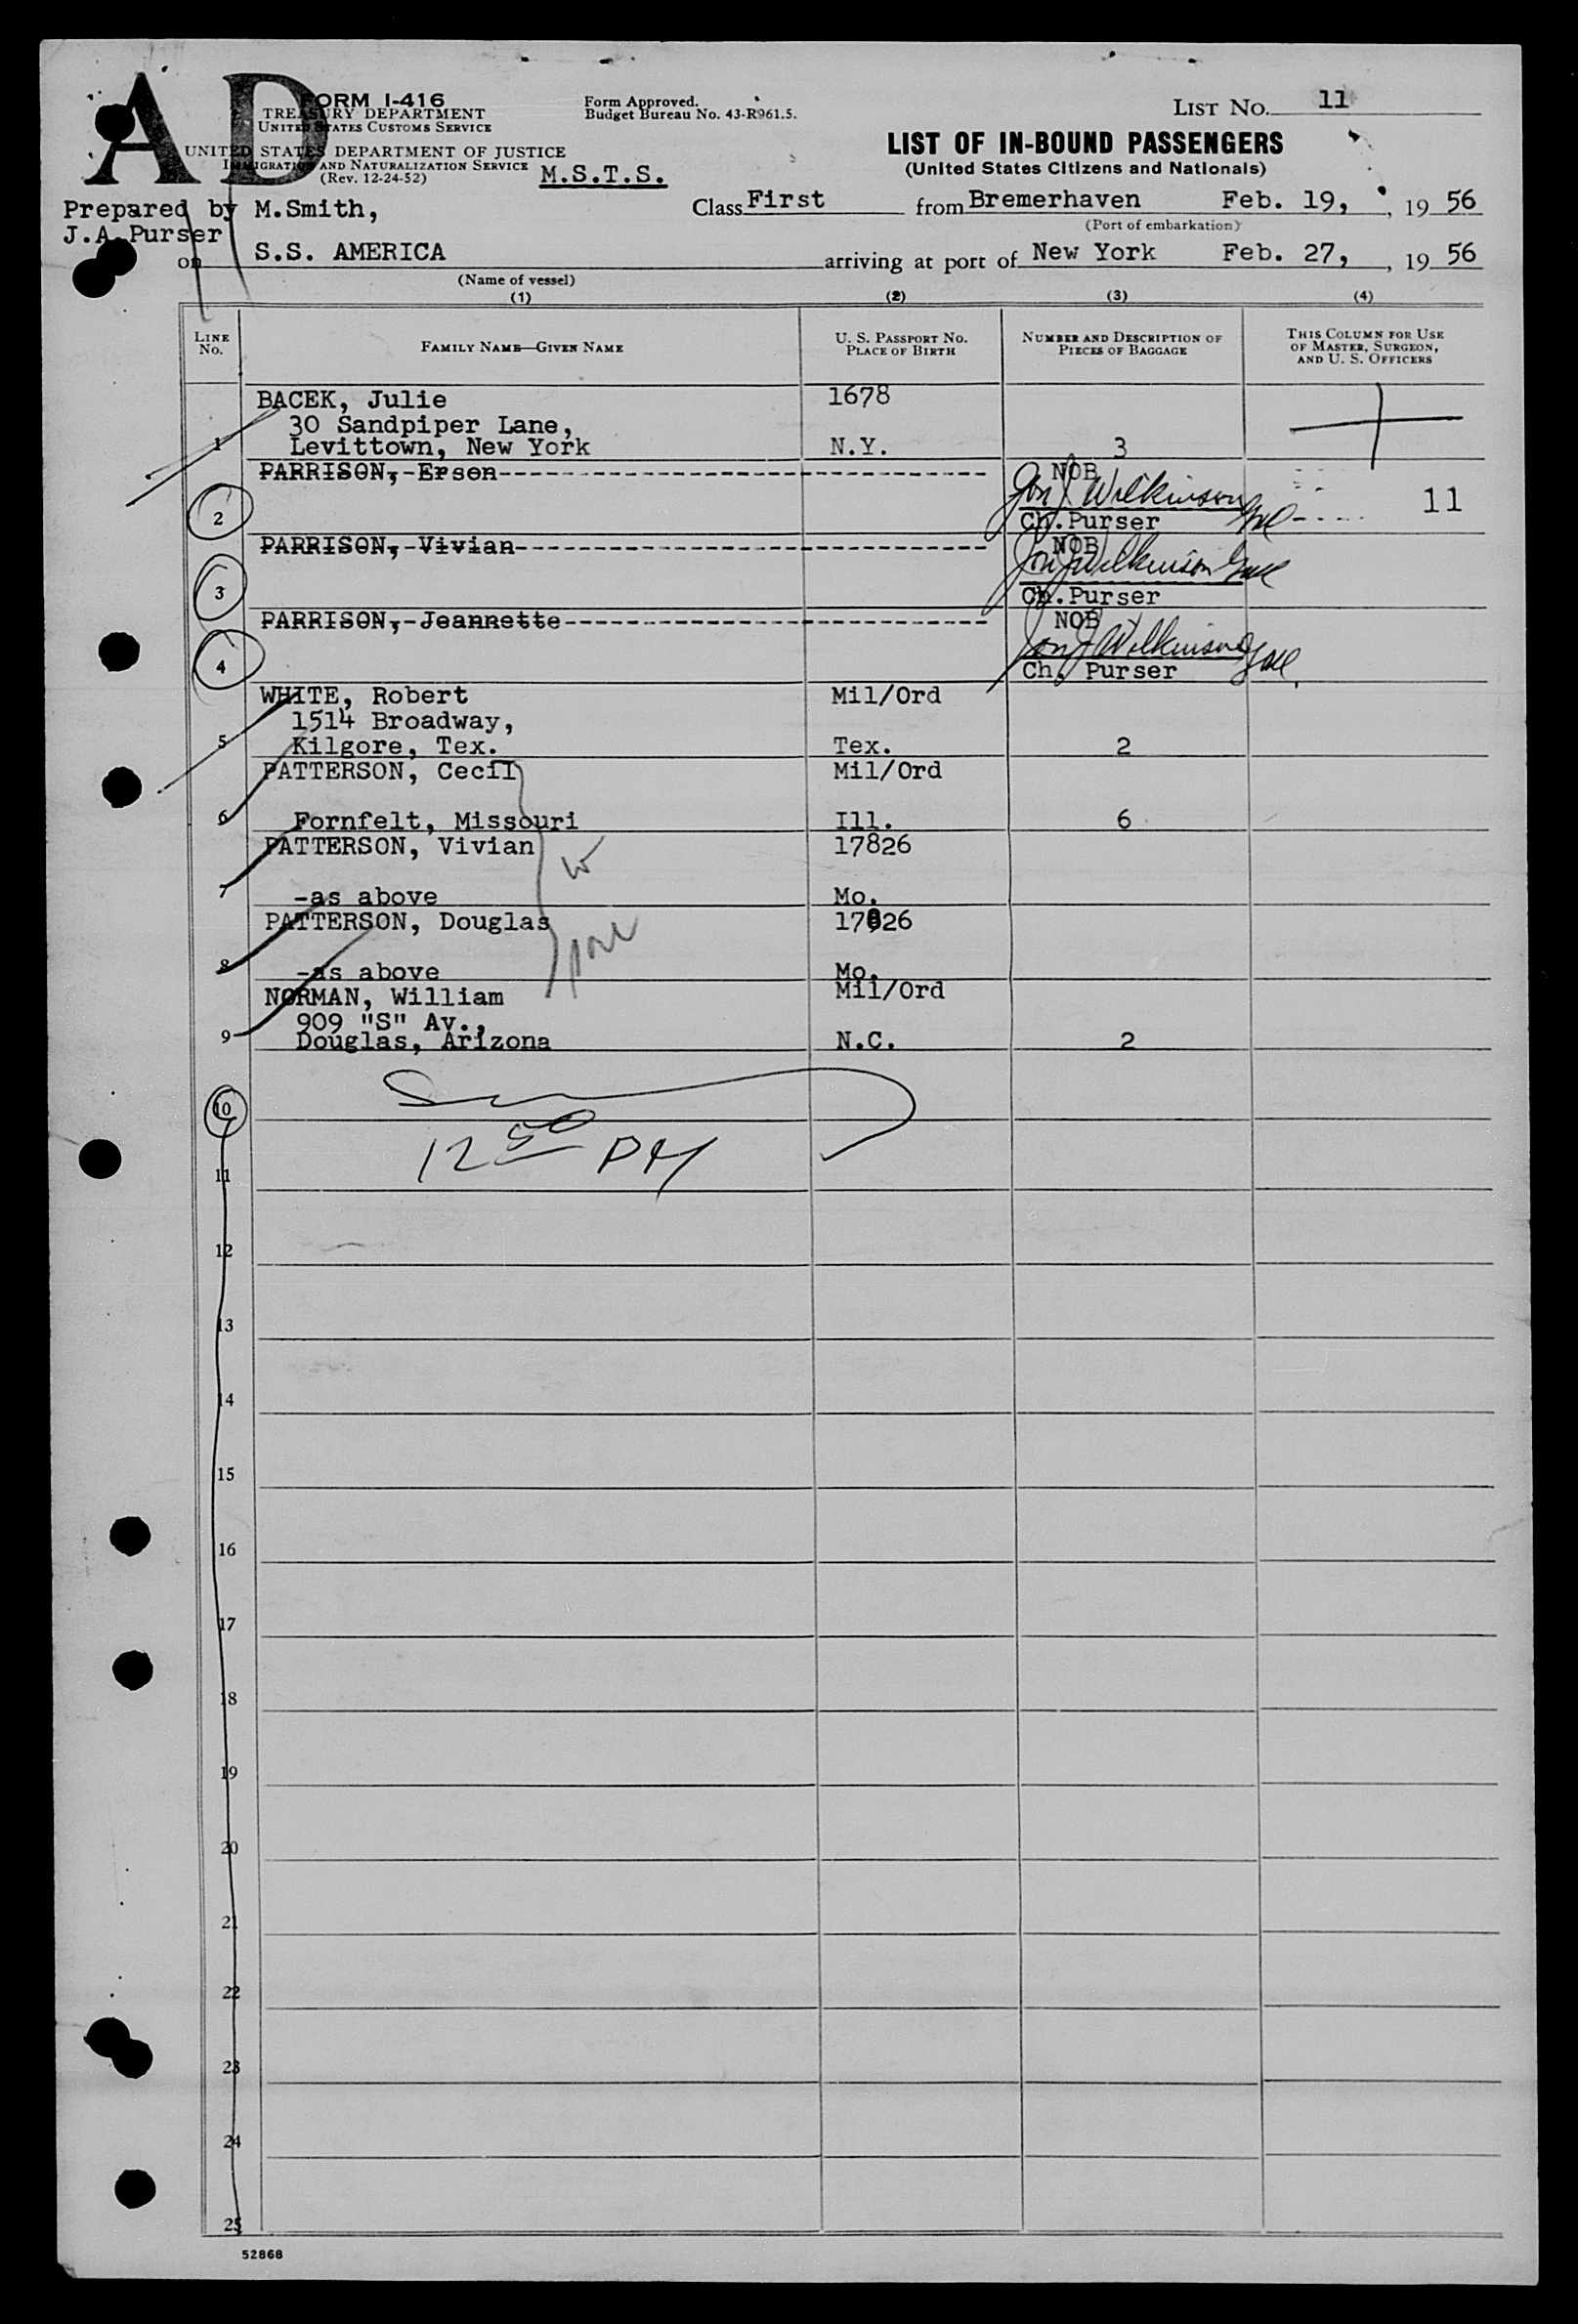 AD
FORM I-416
TREASURY DEPARTMENT
UNITED STATES CUSTOMS SERVICE
UNITED STATES DEPARTMENT OF JUSTICE
IMMIGRATION AND NATURALIZATION SERVICE
(Rev. 12-24-52)
M.S.T.S.
Form Approved.
Budget Bureau No. 43-R961.5.
LIST NO. 11
LIST OF IN-BOUND PASSENGERS
(United States Citizens and Nationals)
Prepared by M.Smith,
J.A.Purser
Class First from Bremerhaven Feb. 19, , 19 56
(Port of embarkation)
on S.S. AMERICA arriving at port of New York Feb. 27, , 19 56
(Name of vessel)
(1) (2) (3) (4)
LINE NO. FAMILY NAME—GIVEN NAME U. S. PASSPORT NO. PLACE OF BIRTH NUMBER AND DESCRIPTION OF PIECES OF BAGGAGE THIS COLUMN FOR USE OF MASTER, SURGEON, AND U. S. OFFICERS
BACEK, Julie 1678
30 Sandpiper Lane,
1 Levittown, New York N.Y. 3
PARRISON, Erson NOB
Jon J Wilkinson
2 Ch.Purser 11
PARRISON, Vivian NOB
Jon J Wilkinson
3 Ch.Purser
PARRISON, Jeannette NOB
Jon J Wilkinson
4 Ch. Purser
WHITE, Robert Mil/Ord
1514 Broadway,
5 Kilgore, Tex. Tex. 2
PATTERSON, Cecil Mil/Ord
6 Fornfelt, Missouri Ill. 6
PATTERSON, Vivian 17826
7 -as above Mo.
PATTERSON, Douglas 17826
8 -as above Mo.
NORMAN, William Mil/Ord
909 "S" Av.,
9 Douglas, Arizona N.C. 2
10
12 50 PM
11
12
13
14
15
16
17
18
19
20
21
22
23
24
25
52868